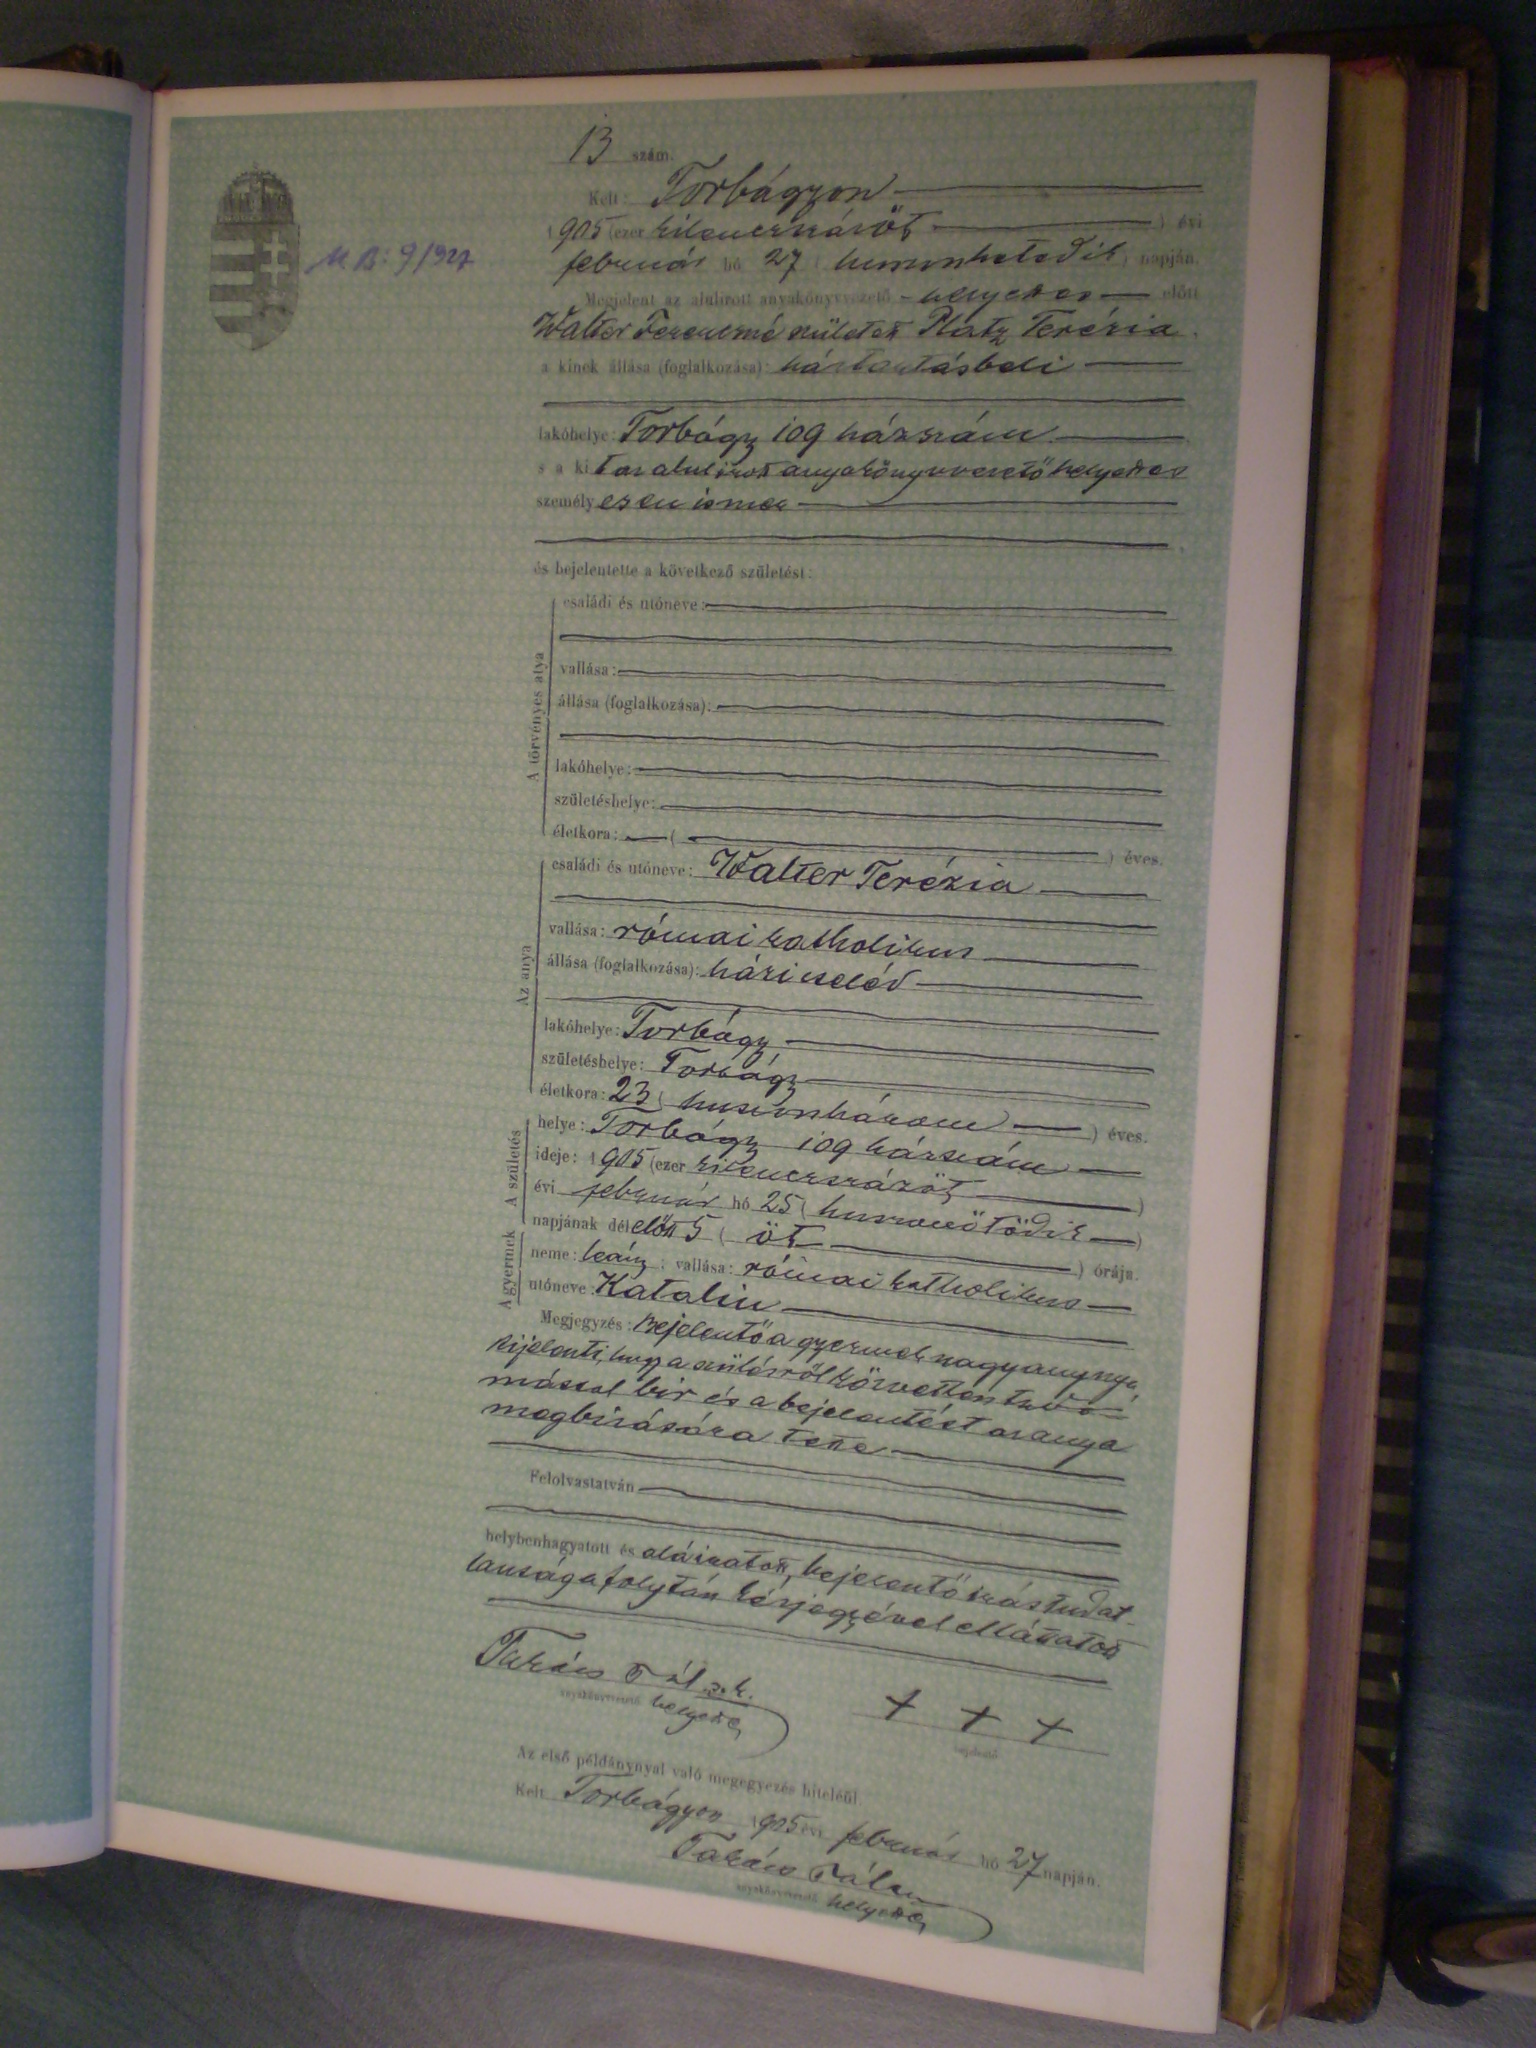 13 szám.
Kelt: Torbágyon
1905 (ezer kilenczszázöt) évi
február hó 27 (huszonhetedik) napján.
M B: 9/927
Megjelent az alulirott anyakönyvvezető-helyettes előtt
Walter Ferenczné született Platz Terézia
a kinek állása (foglalkozása): háztartásbeli
lakóhelye: Torbágy 109 házszám
s a kit az alulirott anyakönyvvezetőhelyettes
személyesen ismer
és bejelentette a következő születést:
A törvényes atya
családi és utóneve:
vallása:
állása (foglalkozása):
lakóhelye:
születéshelye:
életkora: ( ) éves.
Az anya
családi és utóneve: Walter Terézia
vallása: római katholikus
állása (foglalkozása): házi cseléd
lakóhelye: Torbágy
születéshelye: Torbágy
életkora: 23 (huszonhárom) éves.
A születés
helye: Torbágy 109 házszám
ideje: 1905 (ezer kilenczszázöt)
évi február hó 25 (huszonötödik)
napjának délelőtt 5 (öt) órája.
A gyermek
neme: leány; vallása: római katholikus
utóneve: Katalin
Megjegyzés: Bejelentő a gyermek nagyanyja,
kijelenti, hogy a szülésről közvetlen tudo-
mással bir és a bejelentést az anya
megbizására tette
Felolvastatván
helybenhagyatott és aláiratott, bejelentő irástudat-
lansága folytán kézjegyével elláttatott
Takács Pál s.k.
anyakönyvvezető helyettes
+ + +
bejelentő
Az első példánynyal való megegyezés hiteléül.
Kelt Torbágyon 1905 évi február hó 27 napján.
Takács Pál
anyakönyvvezető helyettes